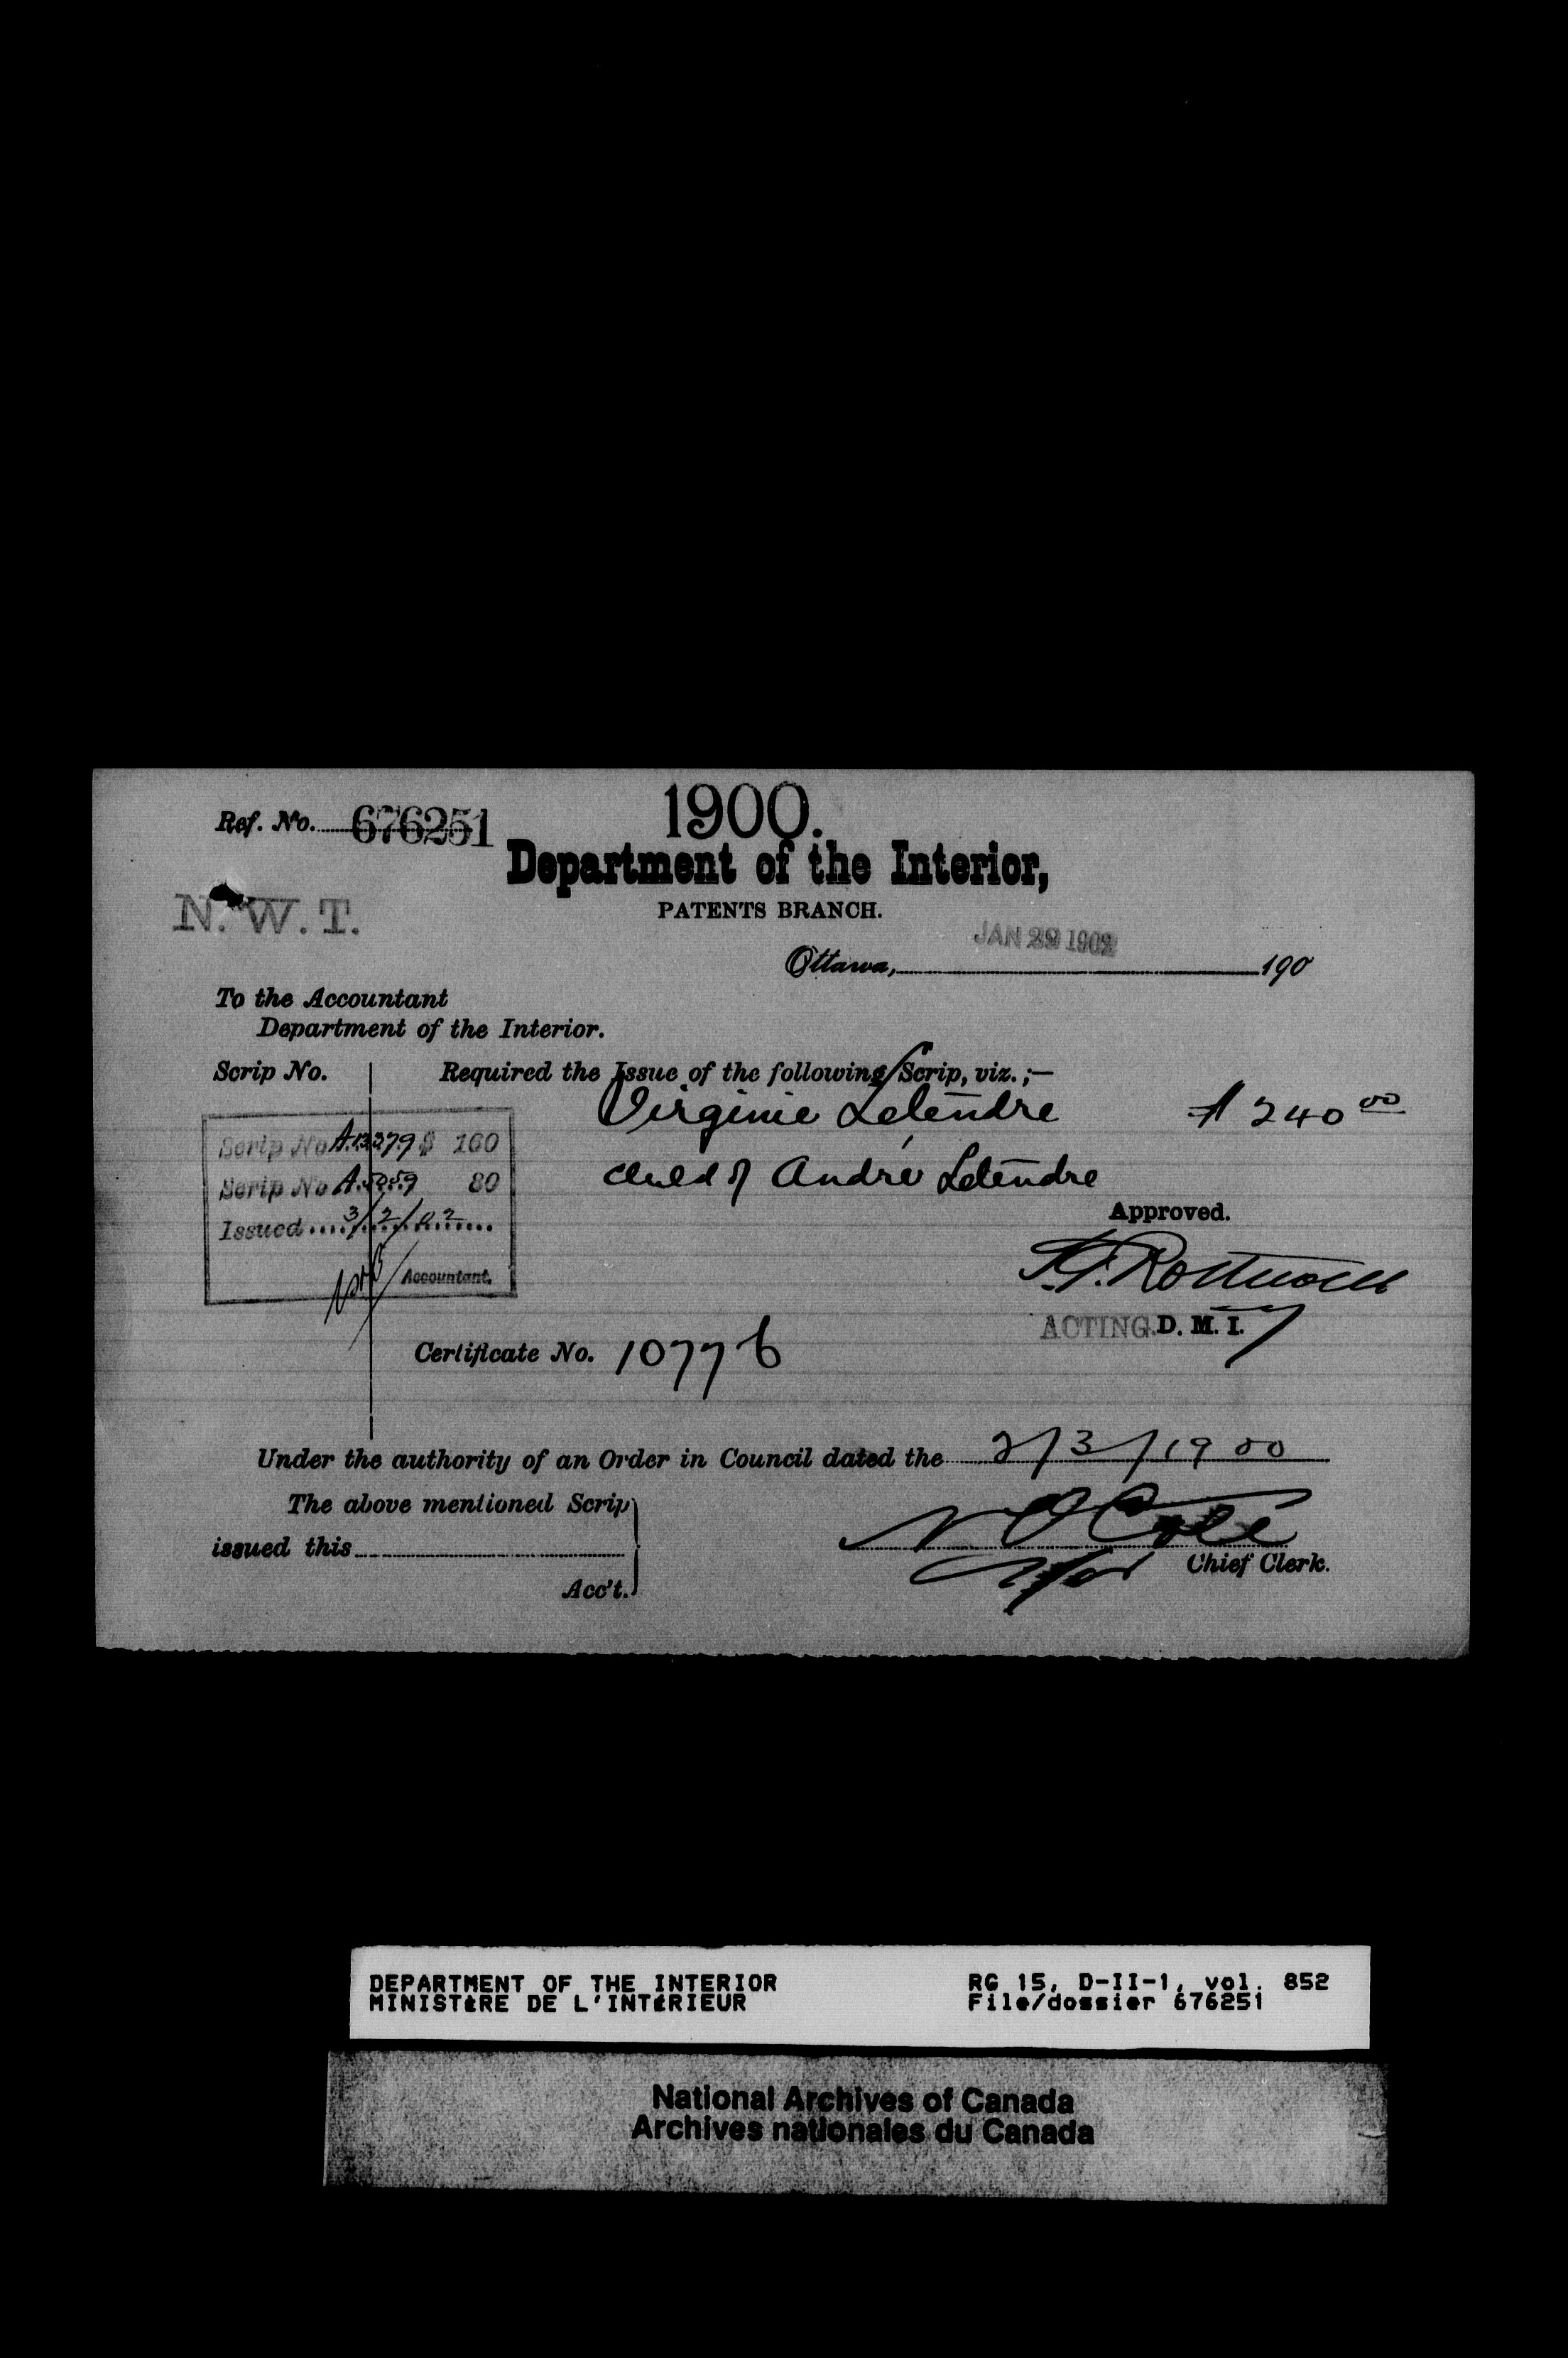 1900.
Ref. No. 676251
Department of the Interior,
N. W. T.
PATENTS BRANCH.
JAN 29 1902
Ottawa, 190
To the Accountant
Department of the Interior.
Scrip No. Required the Issue of the following Scrip, viz.;—
Virginie Letendre $ 240 00
Scrip No A.13379 $ 160
child of André Letendre
Scrip No 80
Approved.
Issued 3/2/02
Accountant.
ACTING. D. M. I.
Certificate No. 1077 6
Under the authority of an Order in Council dated the 2/3/1900
The above mentioned Scrip
issued this
N O Coté
Chief Clerk.
Acc't.
DEPARTMENT OF THE INTERIOR RG 15, D-II-1, vol. 852
MINISTÈRE DE L'INTÉRIEUR File/dossier 676251
National Archives of Canada
Archives nationales du Canada